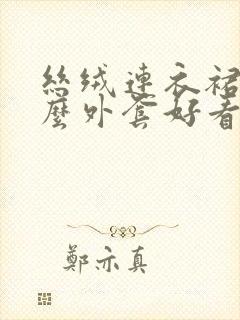 絲絨連衣裙
麼外套好看
鄭亦真